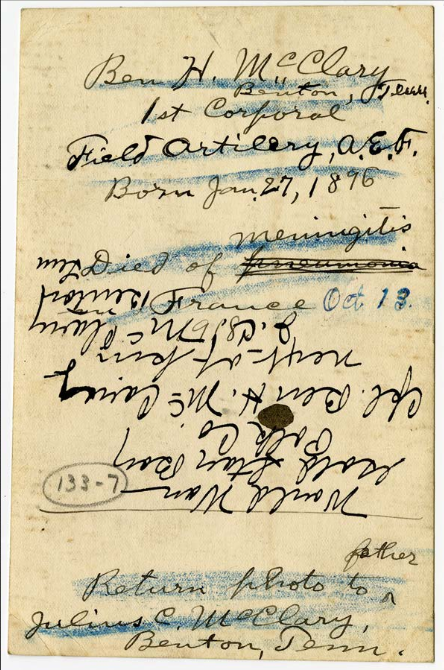 Ben H. McClary
Benton, Tenn.
1st Corporal
Field Artillery, A.E.F.
Born Jan. 27, 1896
meningitis
Died of pneumonia
in France Oct 13.
World War
Gold Star Boy
Polk Co.
Cpl. Ben H. McClary
next-of kin
McClary
Benton
Tenn
133-7
father
Return photo to
Julius C. McClary,
Benton, Tenn.